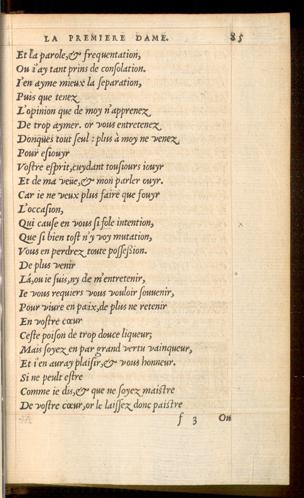 LA PREMIERE DAME. 85
Et la parole, & frequentation,
Ou i'ay tant prins de consolation.
I'en ayme mieux la separation,
Puis que tenez
L'opinion que de moy n'apprenez
De trop aymer. or vous entretenez
Donques tout seul: plus à moy ne venez
Pour esiouyr
Vostre esprit, cuydant tousiours iouyr
Et de ma veüe, & mon parler ouyr.
Car ie ne veux plus faire que fouyr
L'occasion,
Qui cause en vous si fole intention,
Que si bien tost n'y voy mutation,
Vous en perdrez toute possession.
De plus venir
Lá, ou ie suis, ny de m'entretenir,
Ie vous requiers vous vouloir souuenir,
Pour viure en paix, de plus ne retenir
En vostre cœur
Ceste poison de trop douce liqueur;
Mais soyez en par grand vertu vainqueur,
Et i'en auray plaisir, & vous honneur.
Si ne peult estre
Comme ie dis, & que ne soyez maistre
De vostre cœur, or le laissez donc paistre
f 3 Ou